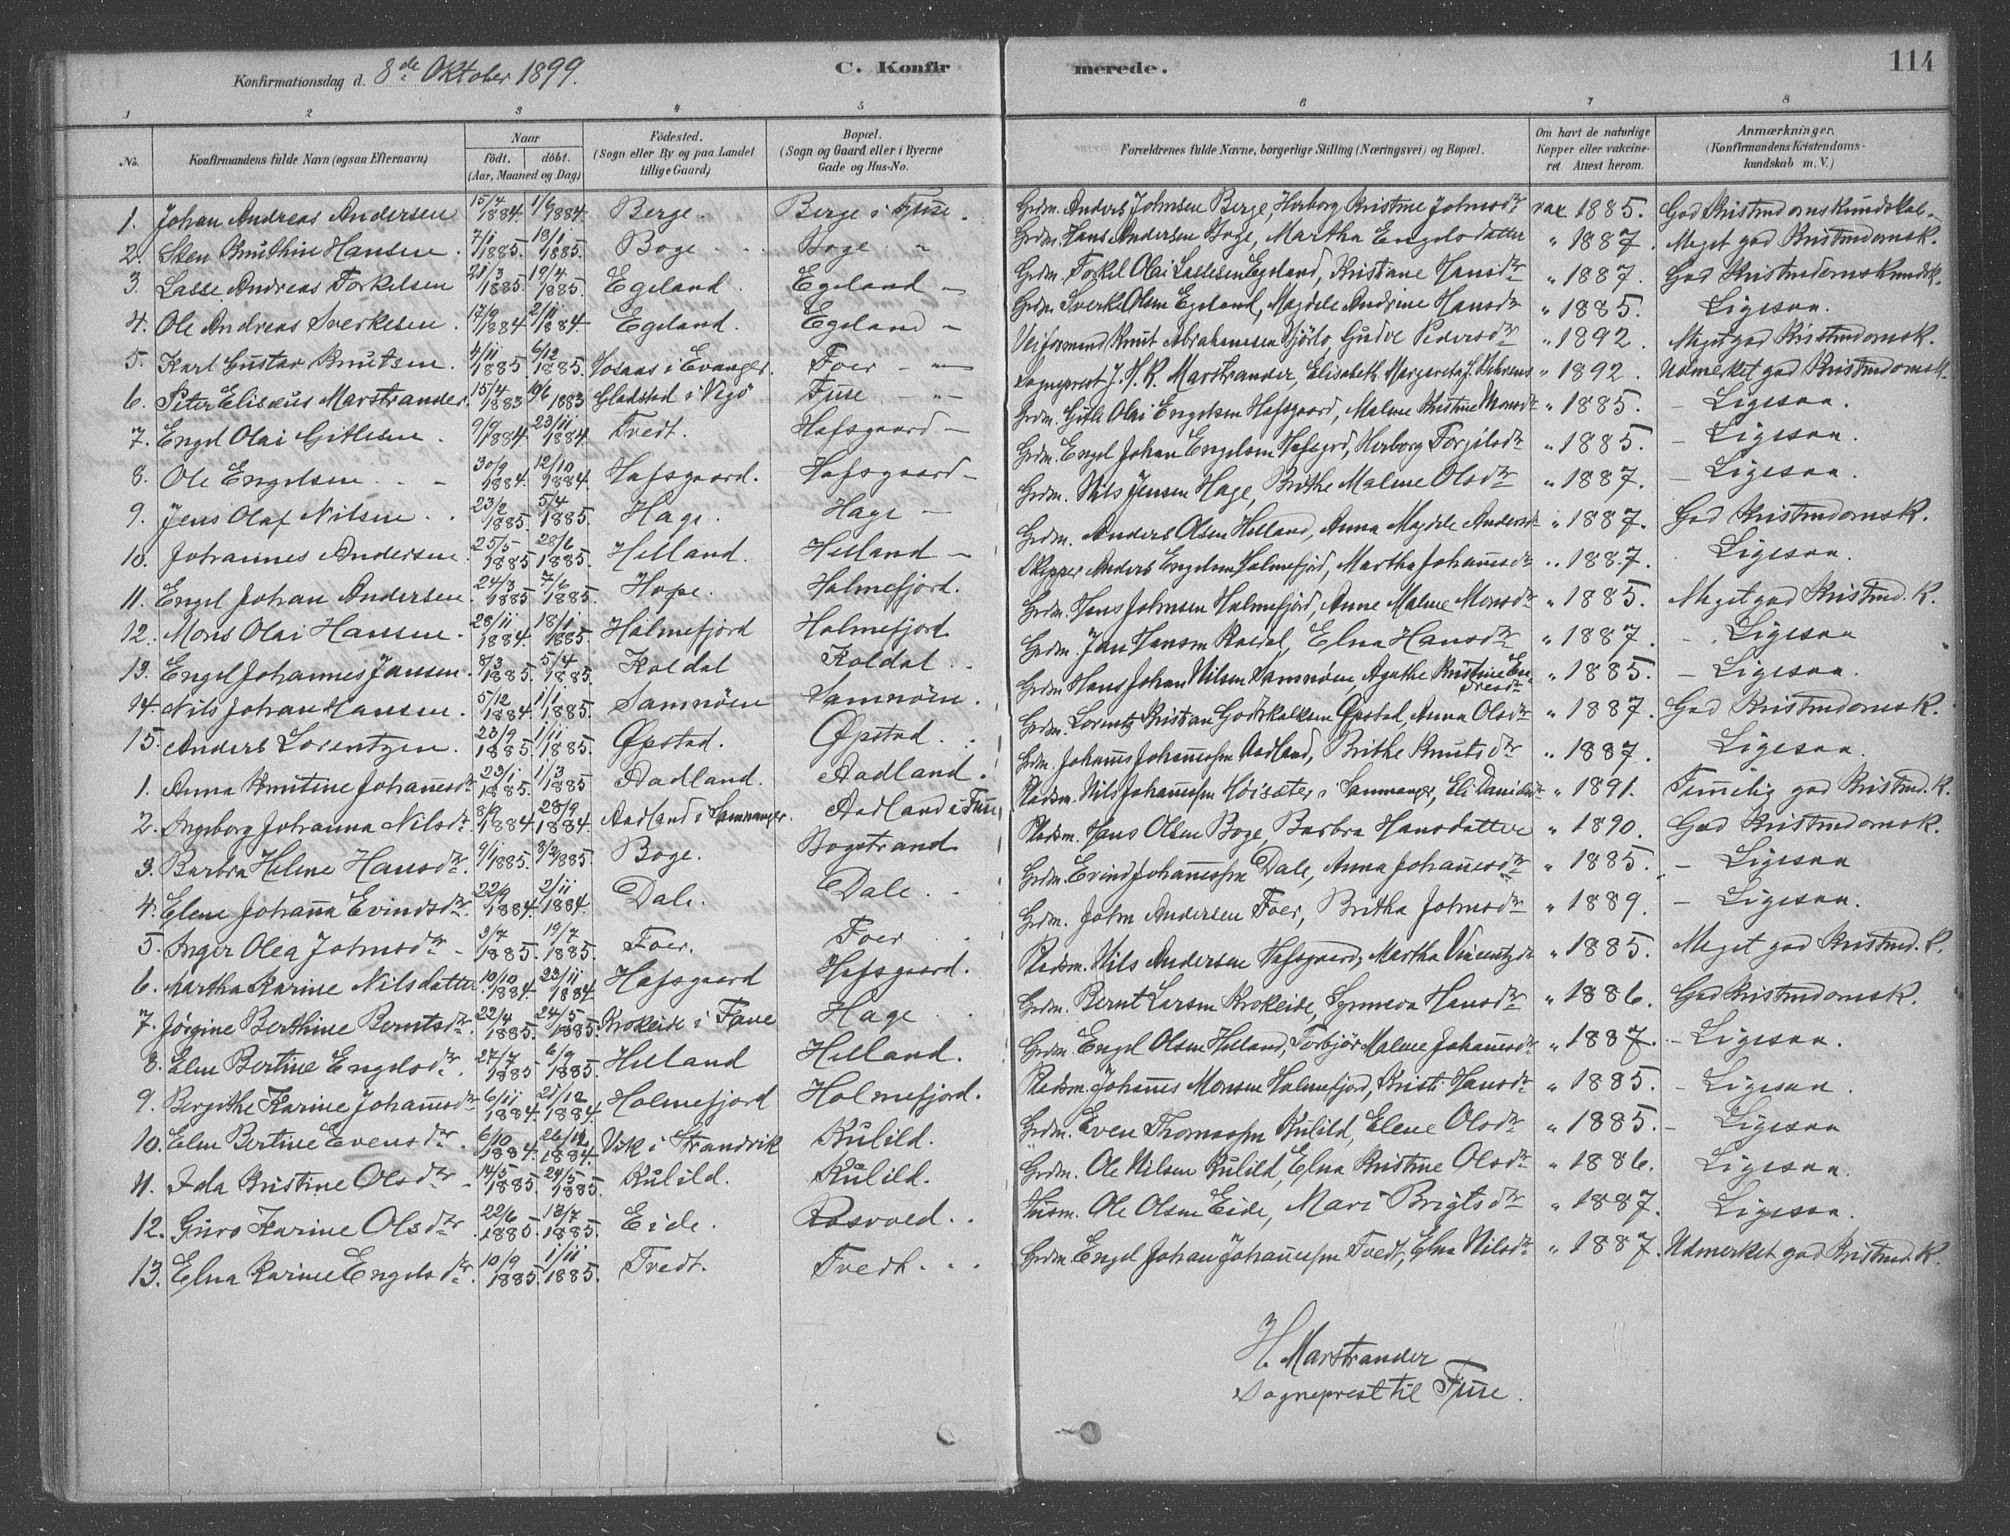 Konfirmationsdag d. 8de Oktober 1899.
C. Konfirmerede.
114
1 2 3 4 5 6 7 8
No.
Konfirmandens fulde Navn (ogsaa Efternavn)
Naar
födt. döbt.
(Aar, Maaned og Dag)
Födested.
(Sogn eller By og paa Landet
tillige Gaard)
Bopæl.
(Sogn og Gaard eller i Byerne
Gade og Hus-No.
Forældrenes fulde Navne, borgerlige Stilling (Næringsvei) og Bopæl.
Om havt de naturlige
Kopper eller vakcine-
ret. Attest herom.
Anmærkninger.
(Konfirmandens Kristendoms-
kundskab m. V.)
1. Johan Andreas Andersen 15/4 1884. 1/6 1884. Berge. Berge i Fuse. Grdm. Anders Johnsen Berge, Herborg Kristine Johnsdtr vax. 1885. God Kristendomskundskab
2. Sten Knuthin Hansen 7/1 1885. 18/1 1885. Boge Boge " Grdm. Hans Andersen Boge, Martha Engelsdatter " 1887. Meget god Kristendomsk.
3. Lasse Andreas Torkelsen 21/3 1885. 19/4 1885. Egeland. Egeland — Grdm. Torkel Olai Lassesen Egeland, Kristiane Hansdtr " 1887. God Kristendomskundsk.
4. Ole Andreas Sverkesen 17/9 1884 2/11 1884 Egeland. Egeland — Grdm. Sverke Olsen Egeland, Magdele Andrine Hansdtr " 1885. Ligesaa.
5. Karl Gustav Knutsen. 4/11 1885. 6/12 1885. Vosaas i Evanger. Foer — " Veiformand Knut Abrahamsen, Gudve Pedersdtr " 1892. Meget god Kristendomsk.
6. Peter Elisæus Marstrander. 15/4 1883 10/6 1883 Gladsted i Vigö Fuse — " — Sogneprest J. H. R. Marstrander, Elisabeth Margaretha " 1892. Udmerket god Kristendomsk.
7. Engel Olai Gitlesen. 9/9 1884. 23/11 1884. Tvedt. Hafsgaard — Grdm. Gitle Olai Engelsen Hafsgaard, Malene Kristine Monsdtr " 1885. — Ligesaa.
8. Ole Engelsen 30/9 1884. 12/10 1884. Hafsgaard. Hafsgaard — Grdm. Engel Johan Engelsen Hafsgrd, Herborg Torgilsdtr " 1885. — Ligesaa.
9. Jens Olaf Nilsen 23/2 1885. 5/4 1885. Hage. Hage — Grdm. Nils Jensen Hage, Brithe Malene Olsdtr " 1887. — Ligesaa.
10. Johannes Andersen. 25/5 1885 28/6 1885. Helland. Helland — Grdm. Anders Olsen Helland, Anna Magdele Andersdtr " 1887. God Kristendomsk.
11. Engel Johan Andersen. 24/3 1885 7/6 1885. Hope. Holmefjord. Skipper Anders Engelsen Holmefjord, Martha Johannesdtr " 1887. Ligesaa.
12. Mons Olai Hansen. 28/11 1884. 18/1 1885. Holmefjord Holmefjord Grdm. Hans Johnsen Holmefjord, Anne Malene Monsdtr " 1885. Meget god Kristend. K.
13. Engel Johannes Jansen. 8/3 1885. 5/4 1885. Koldal Koldal Grdm. Jan Hansen Koldal, Elna Hansdtr " 1887. — Ligesaa
14. Nils Johan Hansen. 5/12 1884. 1/1 1885. Samnöen Samnöen. Grdm. Hans Johan Nilsen Samnöen, Agathe Kristine Endresdtr " 1885. — Ligesaa.
15. Anders Lorentzen. 23/9 1885 1/11 1885. Øpstad. Øpstad. Grdm. Lorentz Kristian Godskalksen Øpstad, Anna Olsdtr " 1887. God Kristendomsk.
1. Anna Kristine Johannesdtr 23/1 1885. 1/3 1885 Aadland. Aadland. Grdm. Johannes Johannessen Aadland, Brithe Knutsdtr " 1887. Ligesaa.
2. Ingeborg Johanna Nilsdtr. 8/9 1884. 28/9 1884. Aadland i Samnanger. Aadland i Fuse Pladsm. Nils Johannessen Höisæter i Samnanger, Eli Danielsdtr " 1891. Temmelig god Kristend. K.
3. Barbra Helene Hansdtr. 9/1 1885. 8/2 1885. Boge. Bogstrand Pladsm. Hans Olsen Boge, Barbra Hansdatter " 1890. God Kristendomsk.
4. Elene Johanna Evindsdtr. 22/9 1884. 2/11 1884. Dale. Dale. Grdm. Evind Johannessen Dale, Anna Johannesdtr " 1885. — Ligesaa
5. Inger Olea Johnsdtr 3/7 1885. 19/7 1885. Foer. Foer Grdm. John Andersen Foer, Britha Johnsdtr " 1889. — Ligesaa.
6. Martha Karine Nilsdatter 10/10 1884. 23/11 1884 Hafsgaard Hafsgaard. Pladsm. Nils Andersen Hafsgaard, Martha Vincentzdtr " 1885. Meget god Kristend. K.
7. Jörgine Berthine Berntsdtr. 22/4 1885. 24/5 1885. Krokeide i Fane Hage Grdm. Bernt Larsen Krokeide, Synneva Hansdtr " 1886. God Kristendomsk.
8. Elen Bertine Engelsdtr. 27/7 1885 6/9 1885. Helland Helland. Grdm. Engel Olsen Helland, Torbjör Malene Johannesdtr " 1887. — Ligesaa.
9. Bergithe Karine Johannesdtr 6/11 1884. 25/12 1884. Holmefjord Holmefjord. Pladsm. Johannes Monsen Holmefjord, Kristi Hansdtr " 1885. — Ligesaa.
10. Elen Bertine Evensdtr. 6/10 1884. 26/12 1884. Vik i Strandvik Kulild. Grdm. Even Thomassen Kulild, Elene Olsdtr " 1885. — Ligesaa
11. Ida Kristine Olsdtr 14/5 1885. 24/5 1885. Kulild. Kulild. Grdm. Ole Nilsen Kulild, Elna Kristine Olsdtr " 1886. Ligesaa.
12. Guro Karine Olsdtr 22/6 1885. 12/7 1885. Eide. Rosvoed. Husm. Ole Olsen Eide, Mari Brigtsdtr " 1887. Ligesaa.
13. Elna Karine Engelsdtr. 10/9 1885. 1/11 1885. Tvedt. Tvedt. Grdm. Engel Johan Johannessen Tvedt, Elna Nilsdtr " 1887. Udmerket god Kristend. K.
H. Marstrander
Sogneprest til Fuse.